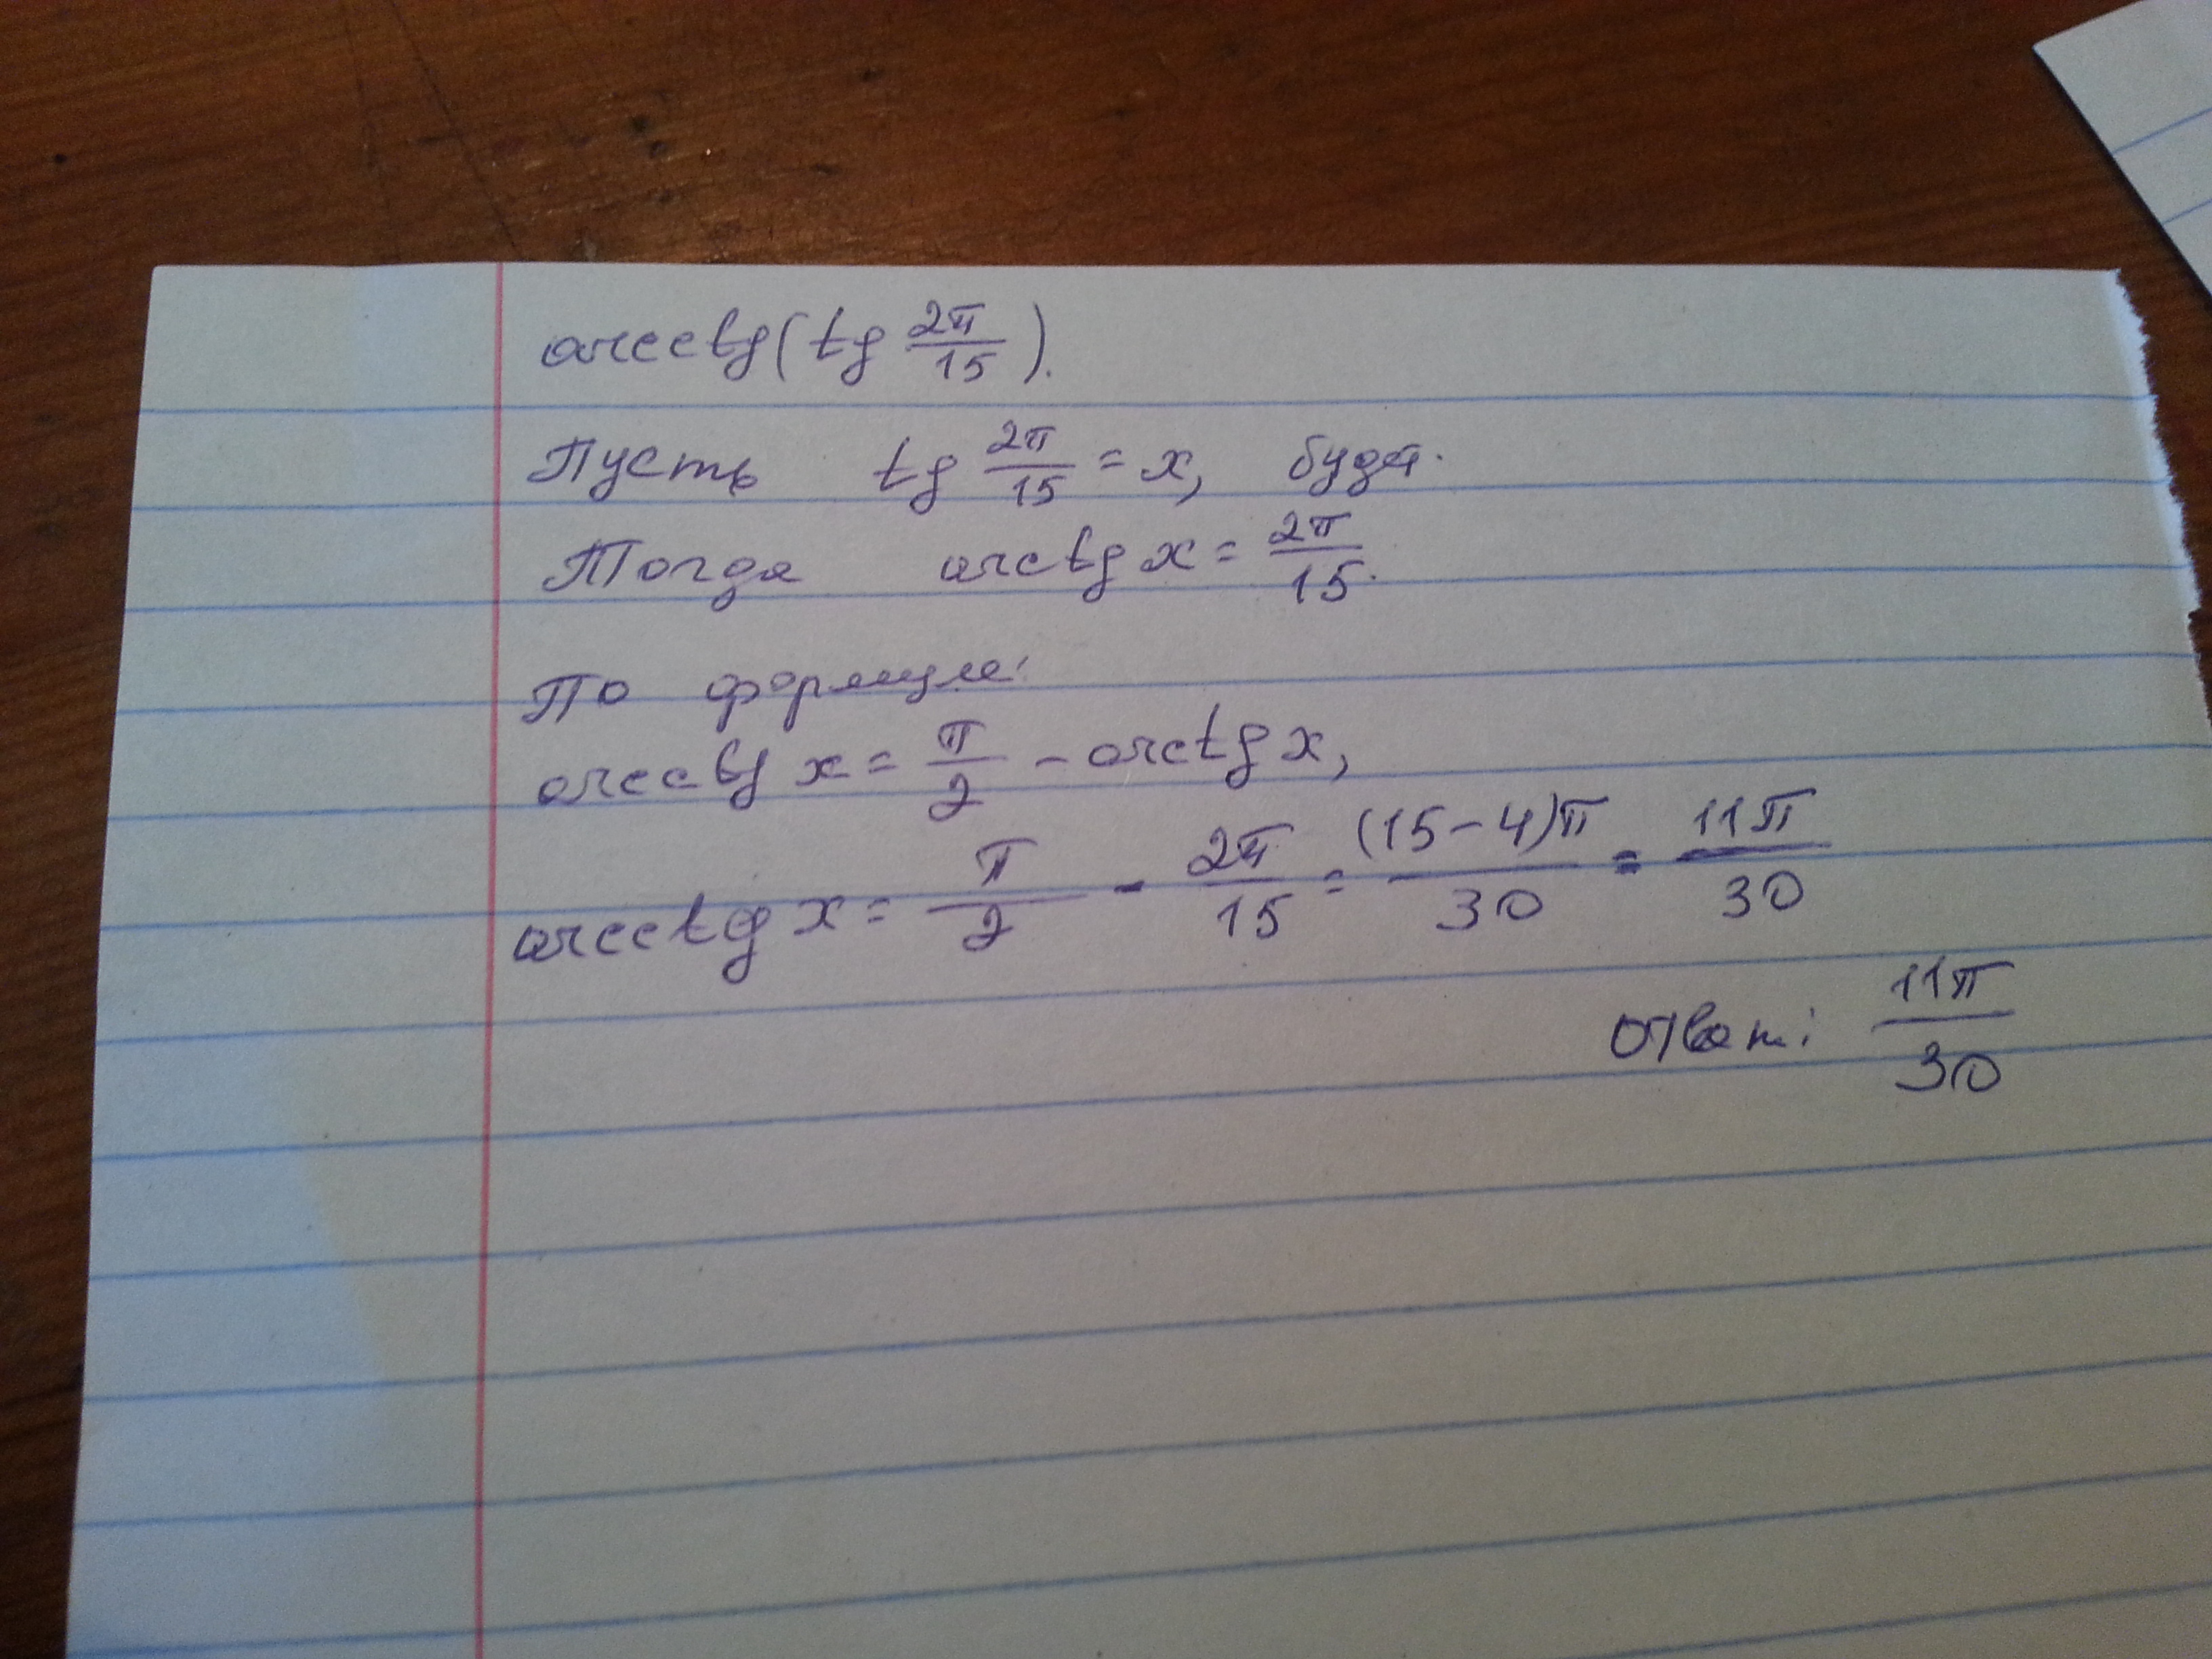 arcctg(tg 2π/15).
Пусть tg 2π/15 = x, буде.
Тогда arctg x = 2π/15.
По формуле:
arcctg x = π/2 - arctg x,
arcctg x = π/2 - 2π/15 = (15-4)π/30 = 11π/30
ответ: 11π/30